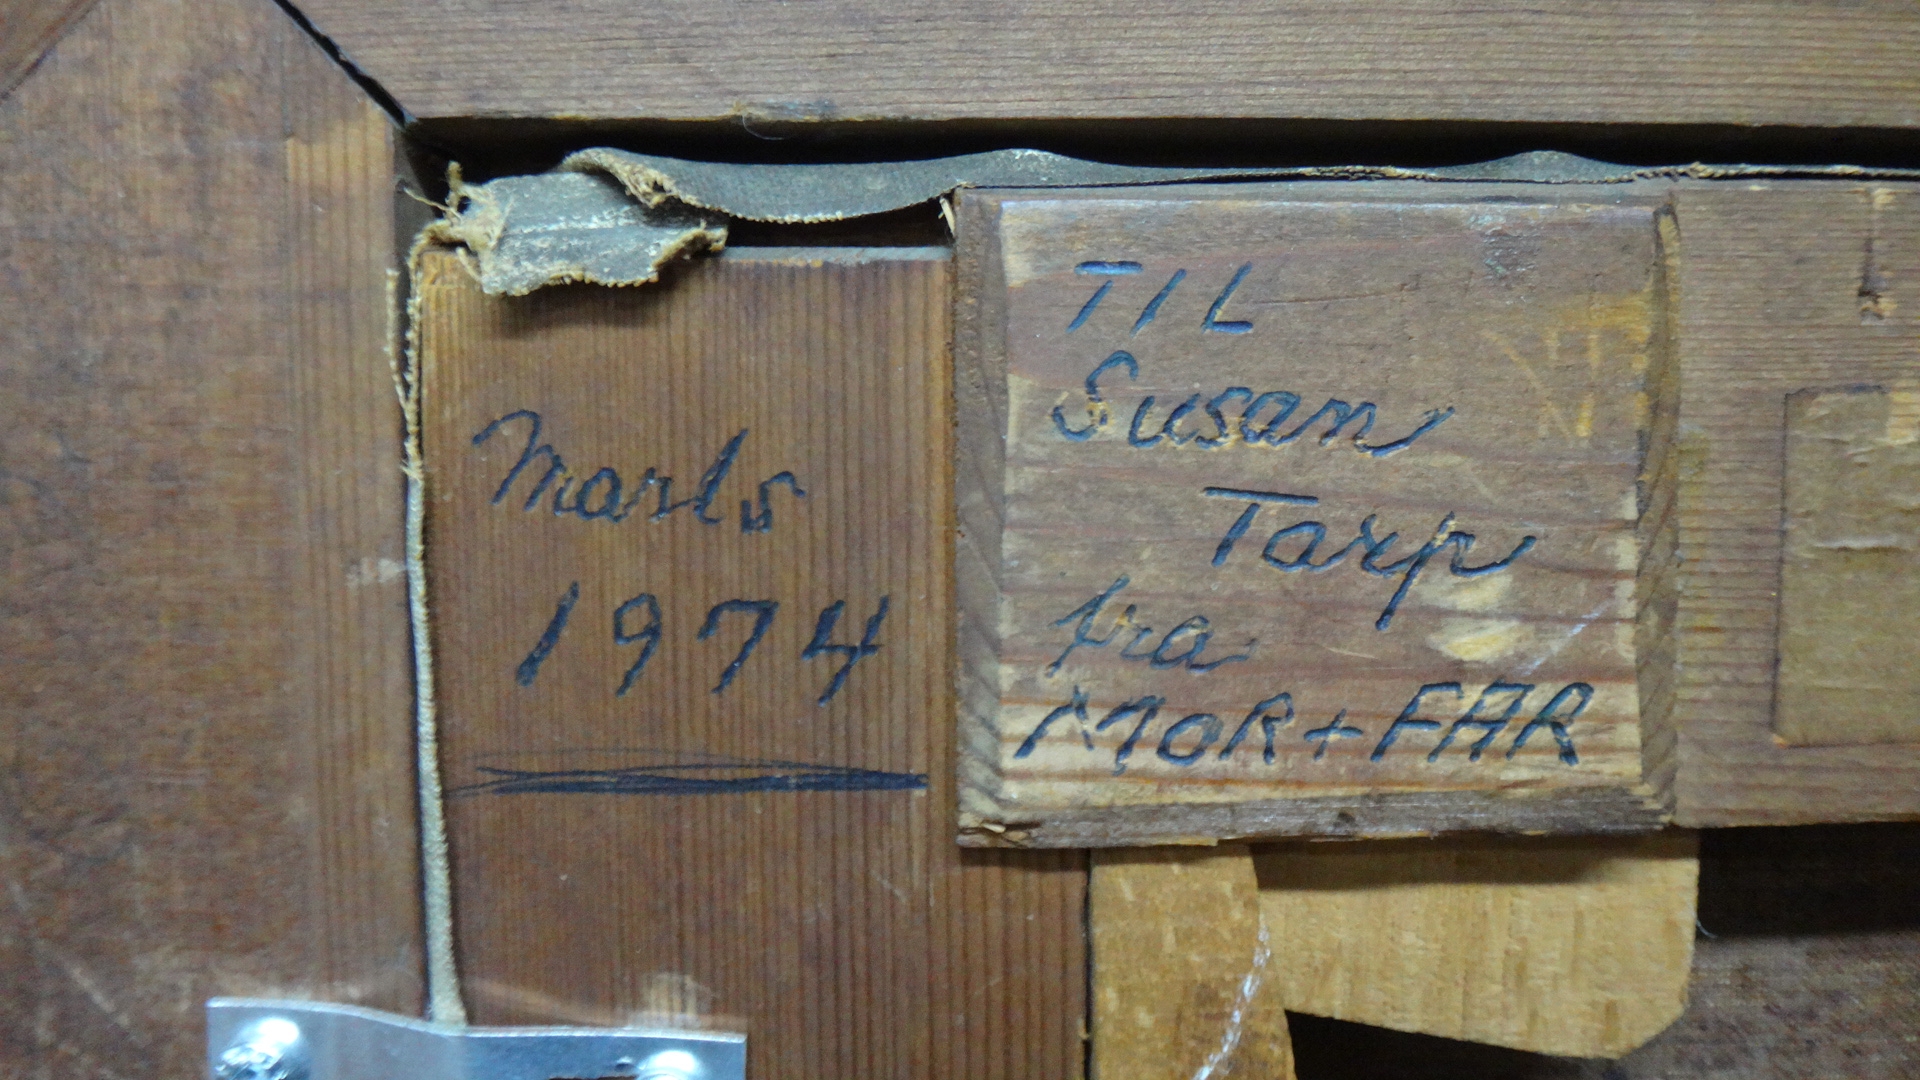 Marts
1974
TIL
Susan
Tarp
fra
MOR + FAR